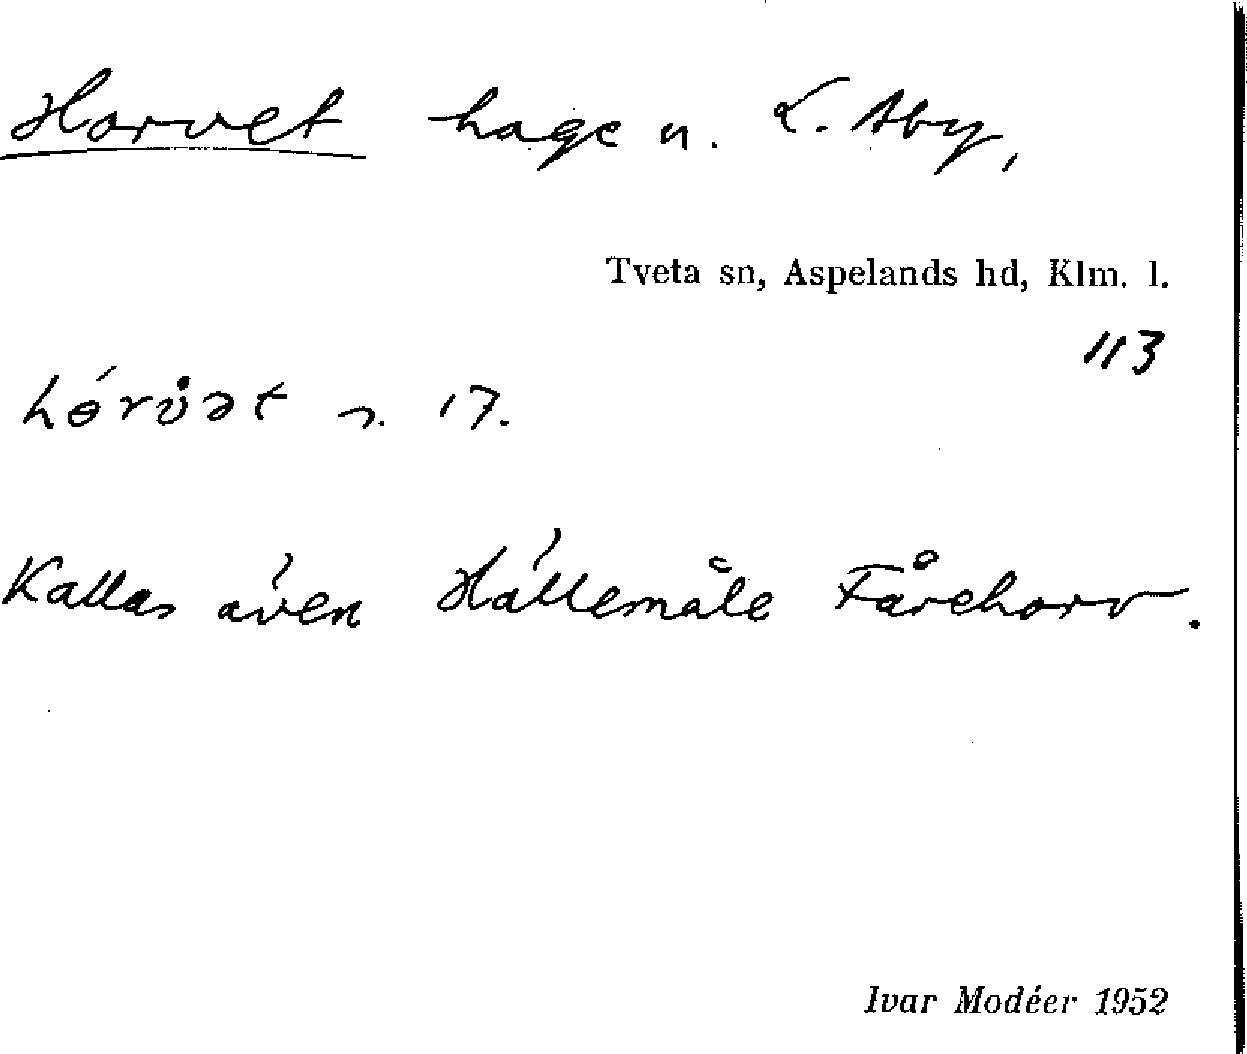 Horvet hage n. L. Aby,
Tveta sn, Aspelands hd, Klm. l.
113
hɵ́rv̊ət n. 17.
Kallas även Hällemåla Fårehorv.
Ivar Modéer 1952